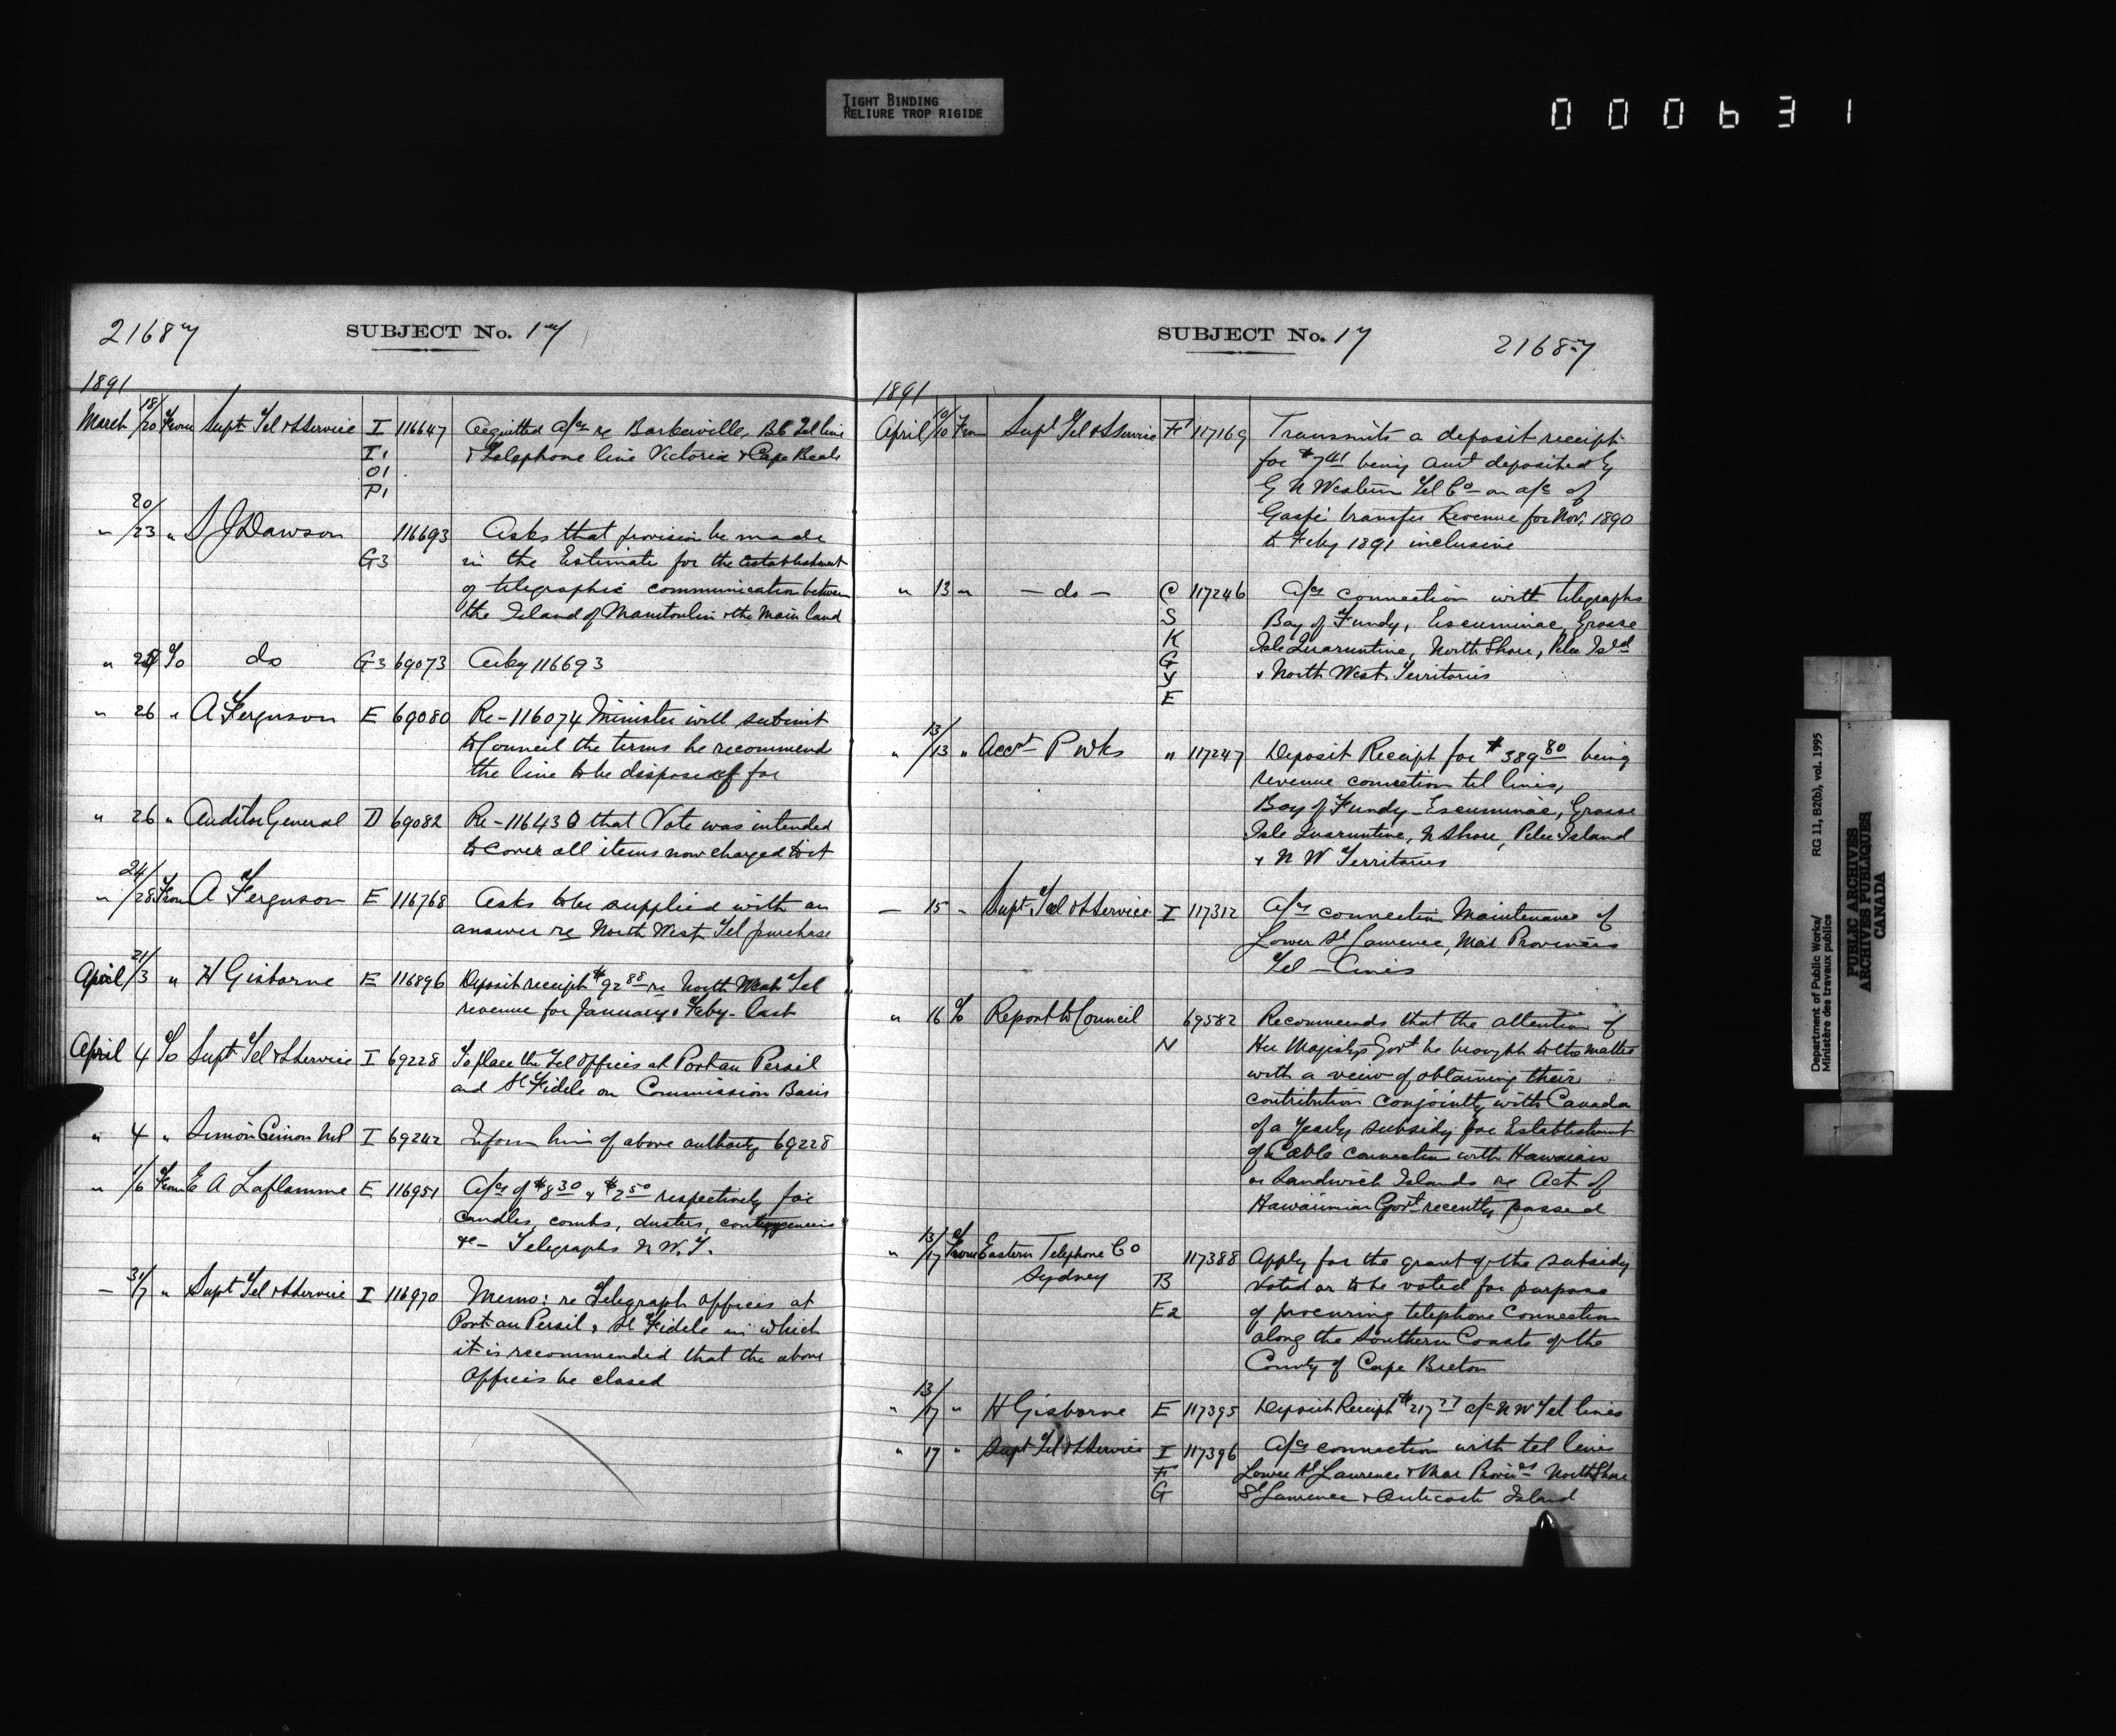 TIGHT BINDING
RELIURE TROP RIGIDE
000631
21687 SUBJECT No. 17
1891
March 18/20 From Supt Tel & S Service I 116647 Acquitted a/cs re Barkerville, B.C. Tel line
I1 & Telephone line Victoria & Cape Beale
O1
P1
" 20/23 " S J Dawson 116693 Asks that provision be made
G3 in the Estimate for the establishment
of telegraphic communication between
the Island of Manitoulin & the Main land
" To do G3 69073 Ackg 116693
" 26 " A Ferguson E 69080 Re-116074 Minister will submit
to Council the terms he recommend
the line to be disposed of for
" 26 " Auditor General D 69082 Re-116430 that Vote was intended
to cover all items now charged to it
" 24/28 From A Ferguson E 116768 Asks to be supplied with an
answer re North West Tel purchase
April 21/3 " H Gisborne E 116896 Deposit receipt $92 88 re North West Tel
revenue for January & Feby - last
April 4 To Supt Tel & S Service I 69228 To place the Tel Offices at Port au Persil
and St Fidele on Commission Basis
" 4 " Simon Cimon M.P I 69242 Inform him of above authority 69228
" 1/6 From E A Laflamme E 116951 A/cs of $8 30 & $2 50 respectively for
candles, combs, dusters, contingencies
&c - Telegraphs N.W.T.
— 31/7 " Supt Tel & S Service I 116970 Memo: re Telegraph offices at
Port au Persil & St Fidele in which
it is recommended that the above
offices be closed
SUBJECT No. 17 21687
1891
April 10/10 From Supt Tel & S Service F1 117169 Transmits a deposit receipt
for $7 41 being amt deposited by
G N Western Tel Co - on a/c of
Gaspé transfer Revenue for Nov. 1890
to Feby 1891 inclusive
" 13 " — do — C 117246 A/cs connection with telegraphs
S Bay of Fundy, Escuminac, Grosse
K Isle Quarantine, North Shore, Pelee Isld
G & North West Territories
Y
E
" 13/13 " Acct P Wks " 117247 Deposit Receipt for $389 80 being
revenue connection tel lines,
Bay of Fundy - Escuminac, Grosse
Isle Quarantine, N Shore, Pelee Island
& N W Territories
— 15 " Supt Tel & S Service I 117312 A/cs connection Maintenance of
Lower St Lawrence, Mar Provinces
Tel - Lines
" 16 To Report to Council 69582 Recommends that the attention of
N Her Majesty's Govt be brought to this matter
with a view of obtaining their
contribution conjointly with Canada
of a yearly subsidy for Establishment
of Cable connection with Hawaian
or Sandwich Islands re Act of
Hawaiinian Govt recently passed
" 13/17 From Eastern Telephone Co 117388 Apply for the grant of the subsidy
Sydney B voted or to be voted for purpose
E2 of procuring telephone connection
along the Southern Coasts of the
County of Cape Breton
" 13/17 " H Gisborne E 117395 Deposit Receipt $217 27 a/c N W Tel lines
" 17 " Supt Tel & S Service I 117396 A/cs connection with tel lines
F Lower St Lawrence & Mar Provinces North Shore
G St Lawrence & Anticosti Island
Department of Public Works/ RG 11, B2(b), vol. 1995
Ministère des travaux publics
PUBLIC ARCHIVES
ARCHIVES PUBLIQUES
CANADA